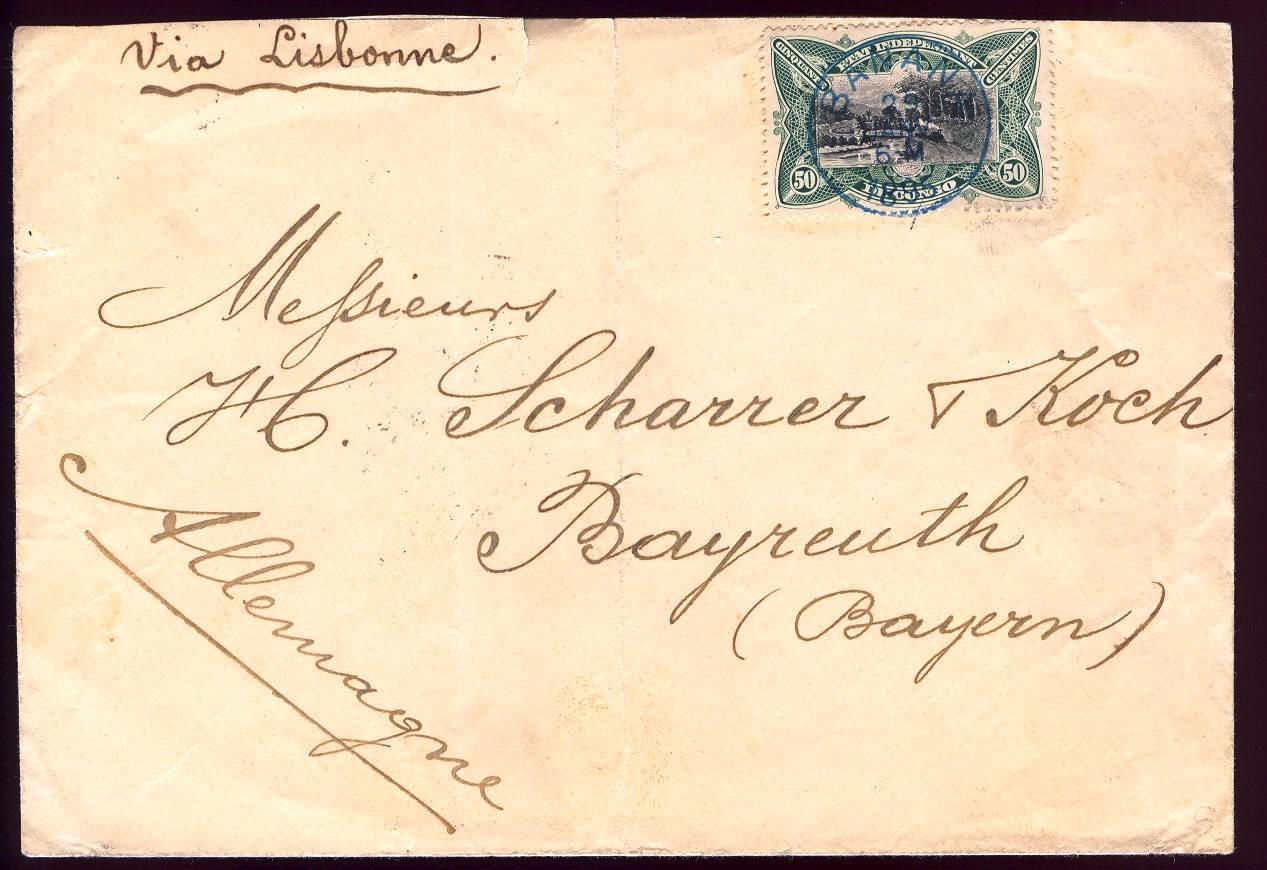 Via Lisbonne.
CINQUANTE ETAT INDEPENDANT CENTIMES
50 DU CONGO 50
Messieurs
H. Scharrer & Koch
Bayreuth
(Bayern)
Allemagne